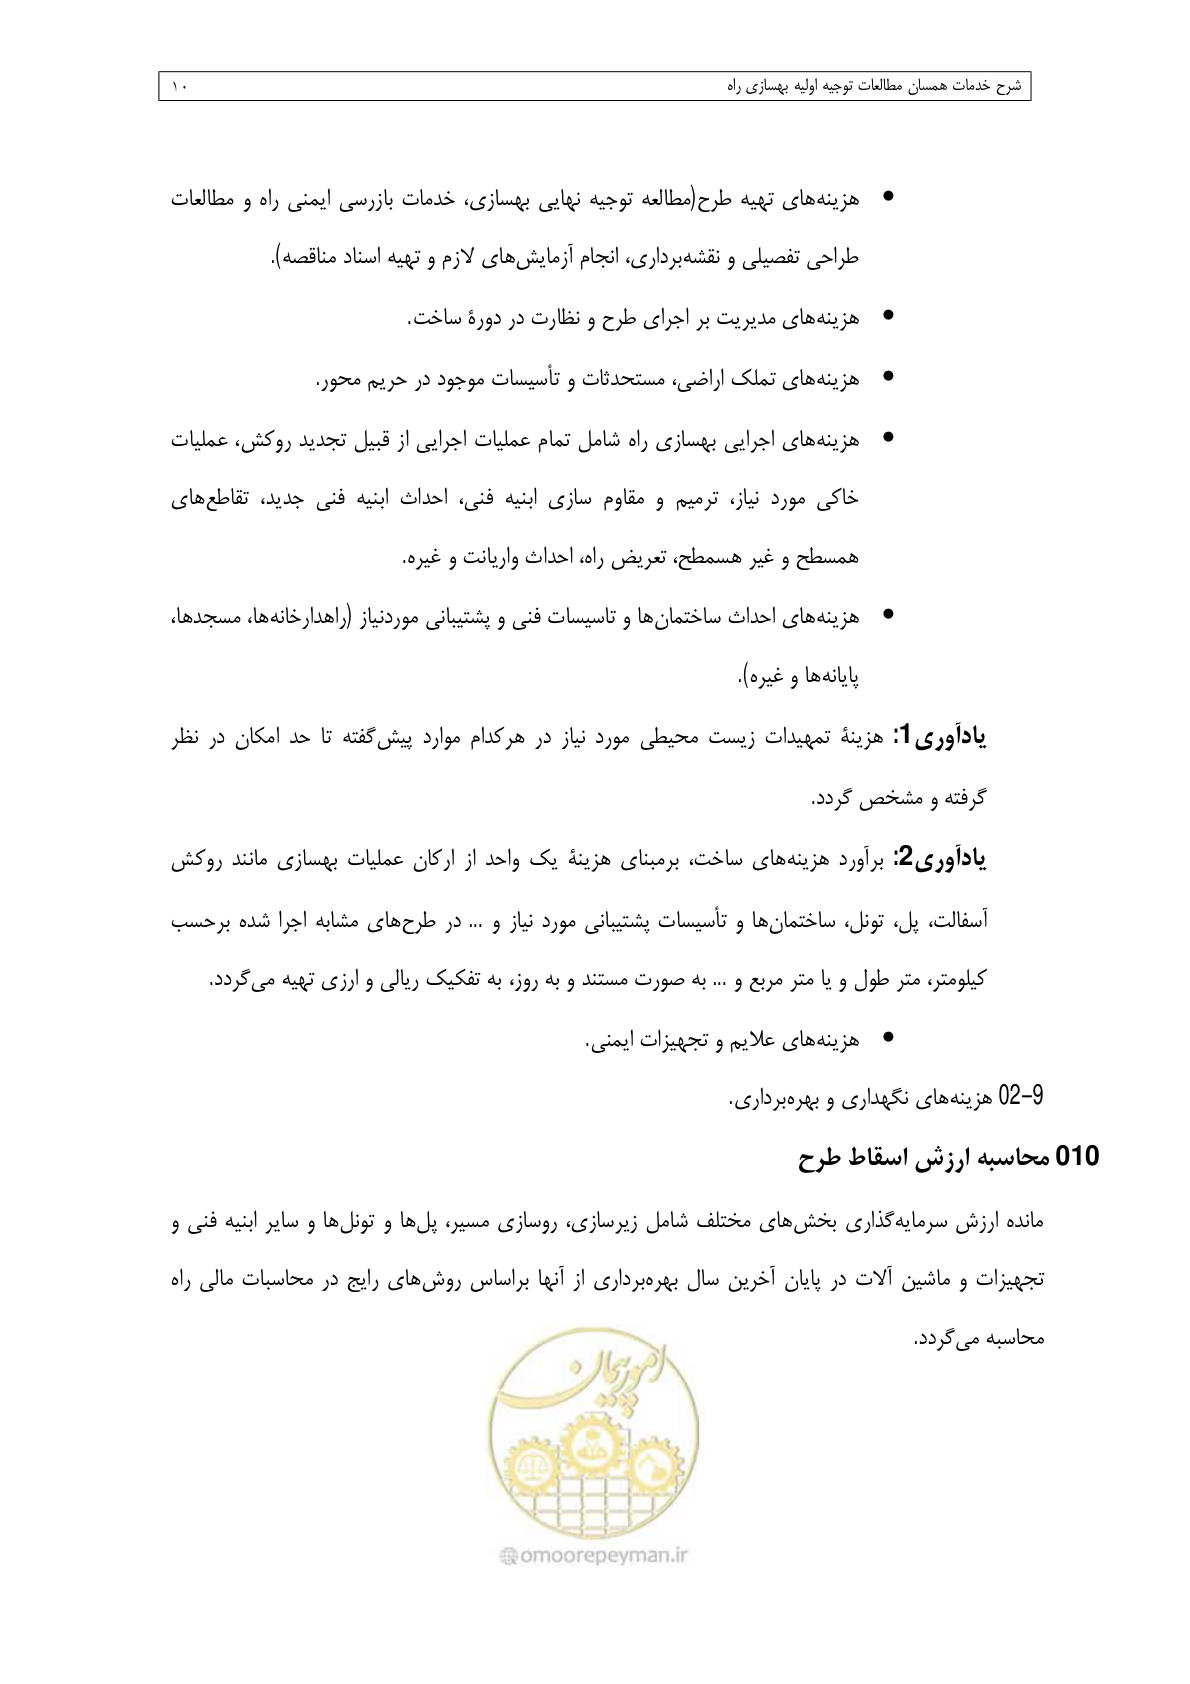 شرح خدمات همسان مطالعات توجیه اولیه بهسازی راه ۱۰
• هزینه‌های تهیه طرح(مطالعه توجیه نهایی بهسازی، خدمات بازرسی ایمنی راه و مطالعات
طراحی تفصیلی و نقشه‌برداری، انجام آزمایش‌های لازم و تهیه اسناد مناقصه).
• هزینه‌های مدیریت بر اجرای طرح و نظارت در دورهٔ ساخت.
• هزینه‌های تملک اراضی، مستحدثات و تأسیسات موجود در حریم محور.
• هزینه‌های اجرایی بهسازی راه شامل تمام عملیات اجرایی از قبیل تجدید روکش، عملیات
خاکی مورد نیاز، ترمیم و مقاوم سازی ابنیه فنی، احداث ابنیه فنی جدید، تقاطع‌های
همسطح و غیر هسمطح، تعریض راه، احداث واریانت و غیره.
• هزینه‌های احداث ساختمان‌ها و تاسیسات فنی و پشتیبانی موردنیاز (راهدارخانه‌ها، مسجدها،
پایانه‌ها و غیره).
یادآوری1: هزینهٔ تمهیدات زیست محیطی مورد نیاز در هرکدام موارد پیش‌گفته تا حد امکان در نظر
گرفته و مشخص گردد.
یادآوری2: برآورد هزینه‌های ساخت، برمبنای هزینهٔ یک واحد از ارکان عملیات بهسازی مانند روکش
آسفالت، پل، تونل، ساختمان‌ها و تأسیسات پشتیبانی مورد نیاز و ... در طرح‌های مشابه اجرا شده برحسب
کیلومتر، متر طول و یا متر مربع و ... به صورت مستند و به روز، به تفکیک ریالی و ارزی تهیه می‌گردد.
• هزینه‌های علایم و تجهیزات ایمنی.
02-9 هزینه‌های نگهداری و بهره‌برداری.
010 محاسبه ارزش اسقاط طرح
مانده ارزش سرمایه‌گذاری بخش‌های مختلف شامل زیرسازی، روسازی مسیر، پل‌ها و تونل‌ها و سایر ابنیه فنی و
تجهیزات و ماشین آلات در پایان آخرین سال بهره‌برداری از آنها براساس روش‌های رایج در محاسبات مالی راه
محاسبه می‌گردد.
امور پیمان
omoorepeyman.ir